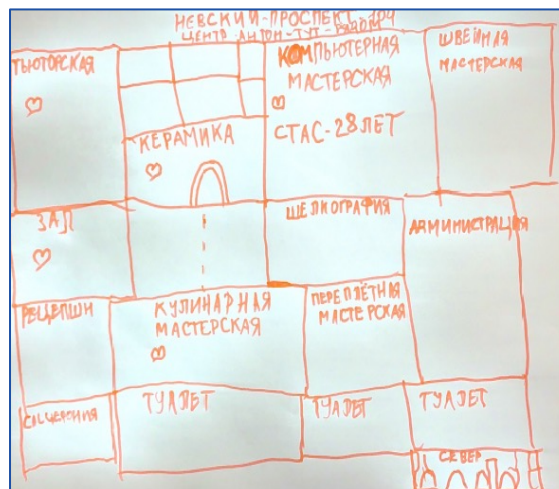 НЕВСКИЙ-ПРОСПЕКТ
ЦЕНТР АНТОН-ТУТ-РЯДОМ
ТЬЮТОРСКАЯ
КОМПЬЮТЕРНАЯ
МАСТЕРСКАЯ
СТАС-28 ЛЕТ
ШВЕЙНАЯ
МАСТЕРСКАЯ
КЕРАМИКА
ЗАЛ
ШЕЛКОГРАФИЯ
АДМИНИСТРАЦИЯ
РЕЦЕПШН
КУЛИНАРНАЯ
МАСТЕРСКАЯ
ПЕРЕПЛЁТНАЯ
МАСТЕРСКАЯ
ТУАЛЕТ
ТУАЛЕТ
ТУАЛЕТ
СКВЕР